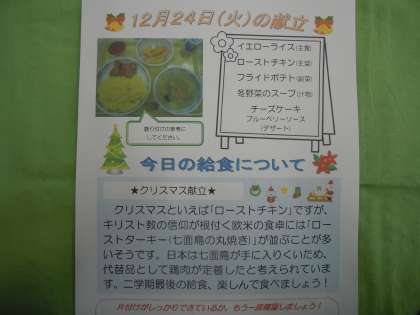 12月24日(火)の献立
イエローライス(主食)
ローストチキン(主菜)
フライドポテト(副菜)
冬野菜のスープ(汁物)
チーズケーキ
ブルーベリーソース
(デザート)
盛り付けの参考に
してください。
今日の給食について
★クリスマス献立★
クリスマスといえば「ローストチキン」ですが、
キリスト教の信仰が根付く欧米の食卓には「ロー
ストターキー(七面鳥の丸焼き)」が並ぶことが多
いそうです。日本は七面鳥が手に入りくいため、
代替品として鶏肉が定着したと考えられていま
す。二学期最後の給食、楽しんで食べましょう!
片付けがしっかりできているか、もう一度確認しましょう!